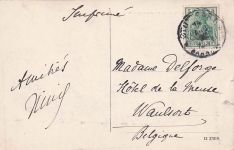 Imprimé
Amitiés
Madame Delforge
Hôtel de la Meuse
Waulsort
Belgique